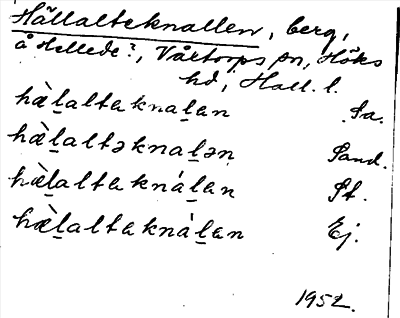 Hällalteknallen, berg,
å Hellede?, Vårtorps sn, Höks
hd, Hall. l.
hæ̀l̲altaknal̲an Sa.
hæ̀l̲altəknal̲ən Sand.
hæ̀l̲altaknál̲an St.
hæ̀l̲altaknál̲an Ej.
1952.